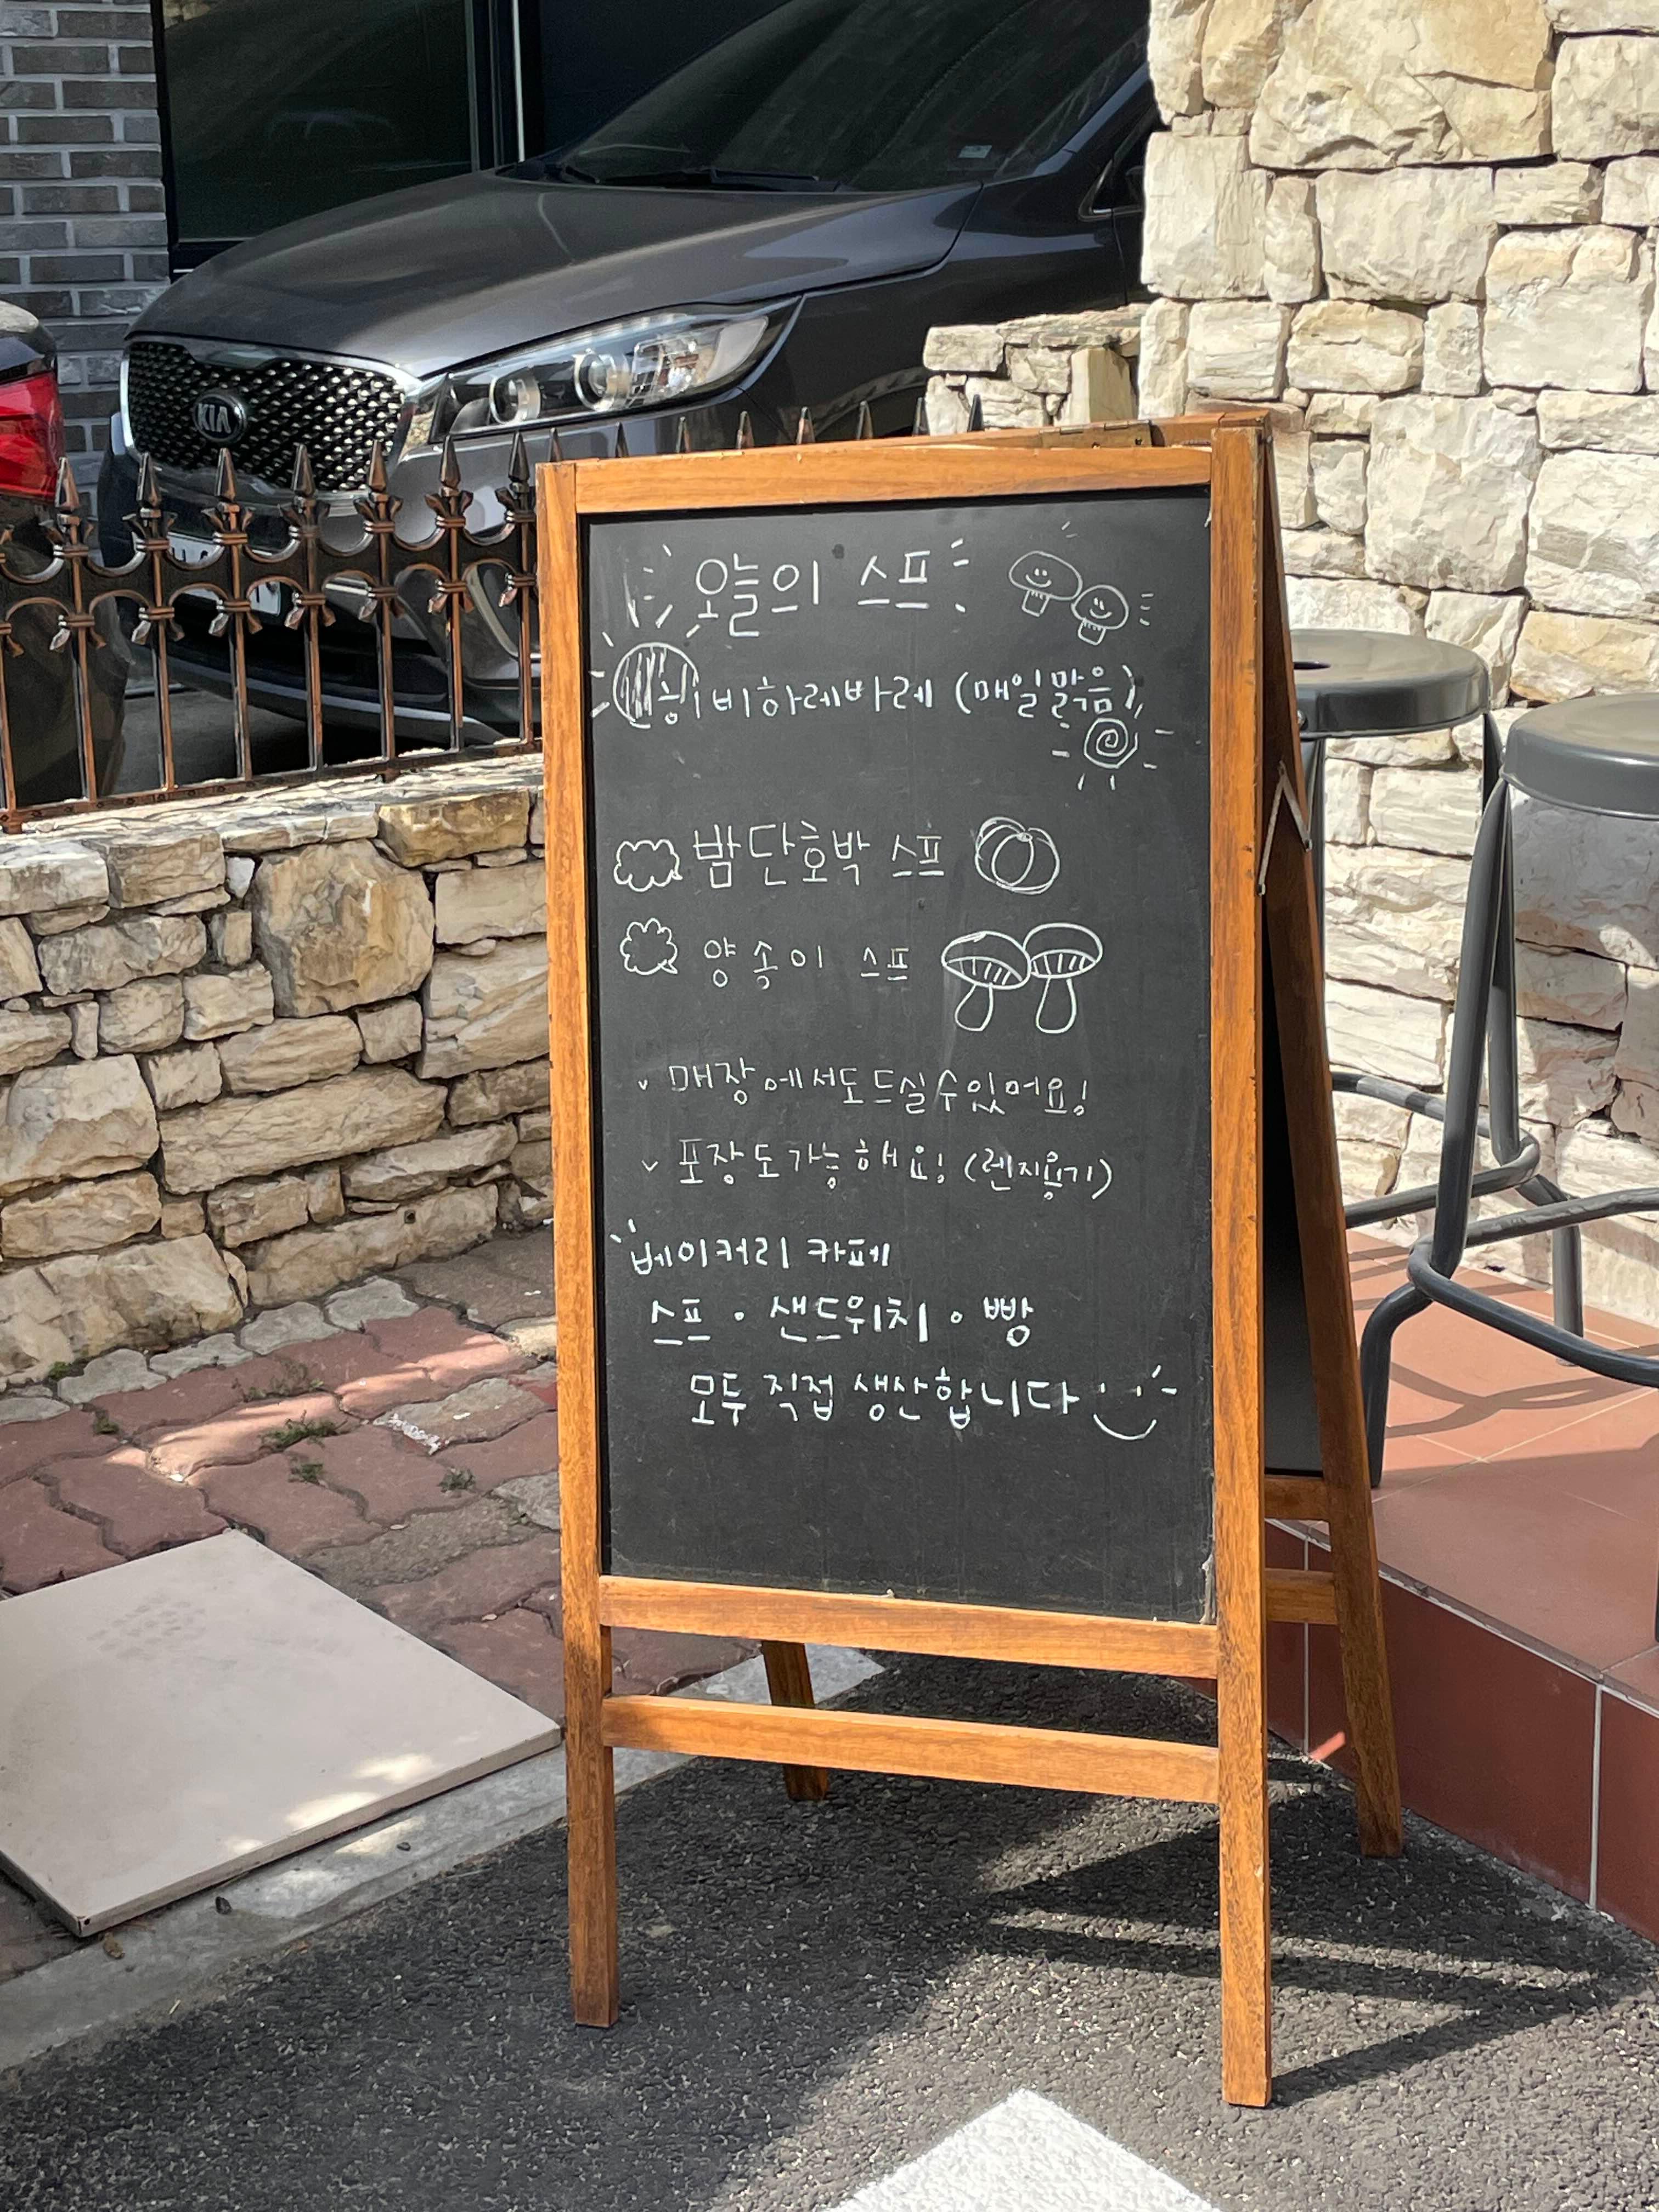 KIA
오늘의 스프
쉬비하레바레 (매일맑음)
밤단호박 스프
양송이 스프
매장에서도 드실수있어요!
포장도가능해요! (렌지용기)
베이커리 카페
스프 · 샌드위치 · 빵
모두 직접 생산합니다